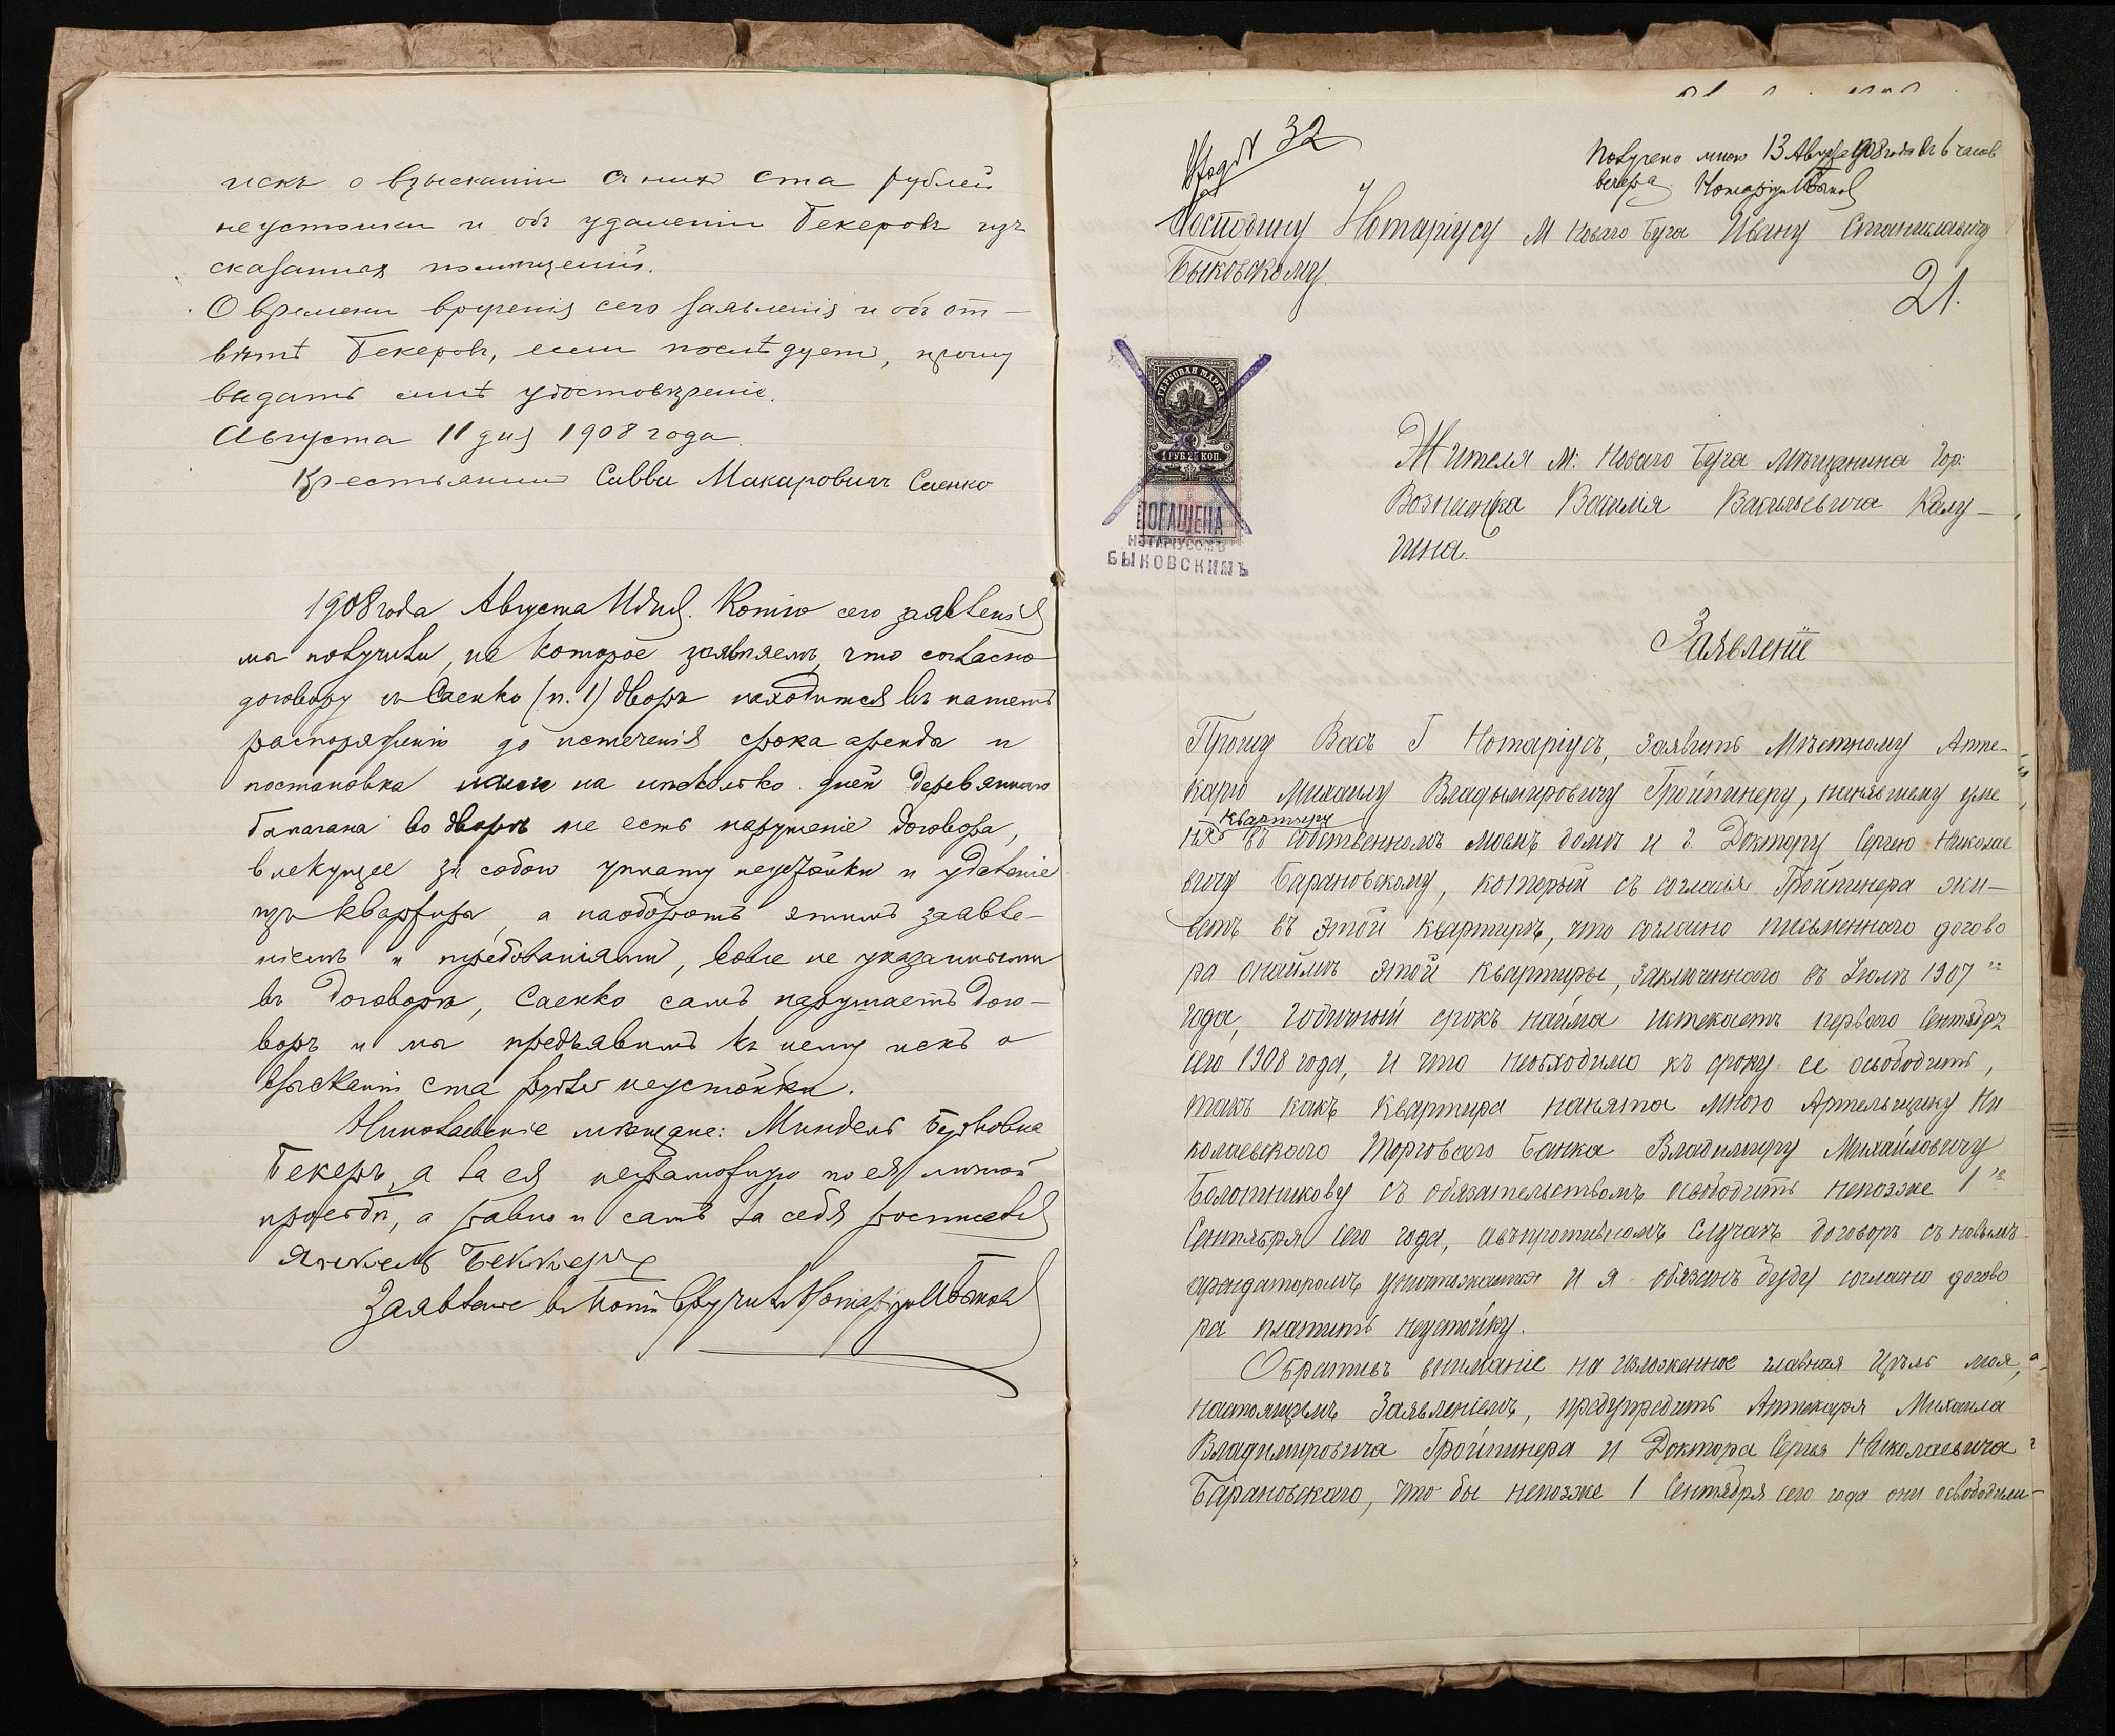 искъ о взысканіи съ нихъ ста рублей
неустойки и объ удаленіи Бекеровъ изъ
сказанныхъ помѣщеній.
О времени врученія сего заявленія и объ от-
вѣтѣ Бекеровъ, если послѣдуетъ, прошу
выдать мнѣ удостовѣреніе.
Августа 11 дня 1908 года.
Крестьянинъ Савва Макаровичъ Саенко
1908 года Августа 11 дня. Копію сего заявленія
мы получили, на которое заявляемъ, что согласно
договору съ Саенко (п. 1) дворъ находится въ нашемъ
распоряженіи до истеченія срока аренды и
постановка нами на нѣсколько дней деревяннаго
балагана во дворѣ не есть нарушеніе договора,
влекущее за собою уплату неустойки и удаленіе
изъ квартиры, а наоборотъ этимъ заявле-
ніемъ и требованіями, вовсе не указанными
въ договорѣ, Саенко самъ нарушаетъ дого-
воръ и мы предъявимъ къ нему искъ о
взысканіи ста рублей неустойки.
Николаевскіе мѣщане: Миндель Берковна
Бекеръ, а за ея неграмотную по ея личной
просьбѣ, а равно и самъ за себя росписался
Янкель Беккеръ
Заявленіе въ копіи вручилъ Нотаріусъ
32
Получено мною 13 Августа 1908 года въ 6 часовъ
вечера Нотаріусъ
Господину Нотаріусу М Новаго Буга Ивану Станиславичу
Быковскому.
21.
ГЕРБОВАЯ МАРКА
1 РУБ. 25 КОП.
ПОГАШЕНА
НОТАРІУСОМЪ
БЫКОВСКИМЪ
Жителя М. Новаго Буга Мѣщанина Гор.
Вознесенска Василія Васильевича Калу-
гина.
Заявленіе
Прошу Васъ Г Нотаріусъ, заявить Мѣстному Апте-
карю Михаилу Владымировичу Гройпинеру, нанявшему уме
квартиру
ня въ собственномъ моемъ домѣ и г. Доктору Сергею Николае
вичу Барановскому, который съ согласія Гройпинера жи-
ветъ въ этой квартирѣ, что согласно письменного догово
ра онаймѣ этой квартиры, заключенного въ Іюлѣ 1907 го
года, годичный срокъ найма истекаетъ первого Сентября
сего 1908 года, и что необходимо къ сроку ее освободить,
такъ какъ квартира нанята мною Артельщику Ни
колаевского Торговаго Банка Владимиру Михайловичу
Болотникову съ обязательствомъ освободить непозже 1 го
Сентября сего года, авъпротивномъ случаѣ договоръ съ новымъ
арендаторомъ уничтожается и я обязанъ буду согласно догово
ра платить неустойку.
Обративъ вниманіе на изложенное главная цѣль моя,
настоящымъ Заявленіемъ, предупредить Аптекаря Михаила
Владимировича Гройпинера и Доктора Сергея Николаевича
Барановскаго, что бы непозже 1 Сентября сего года они освободили-